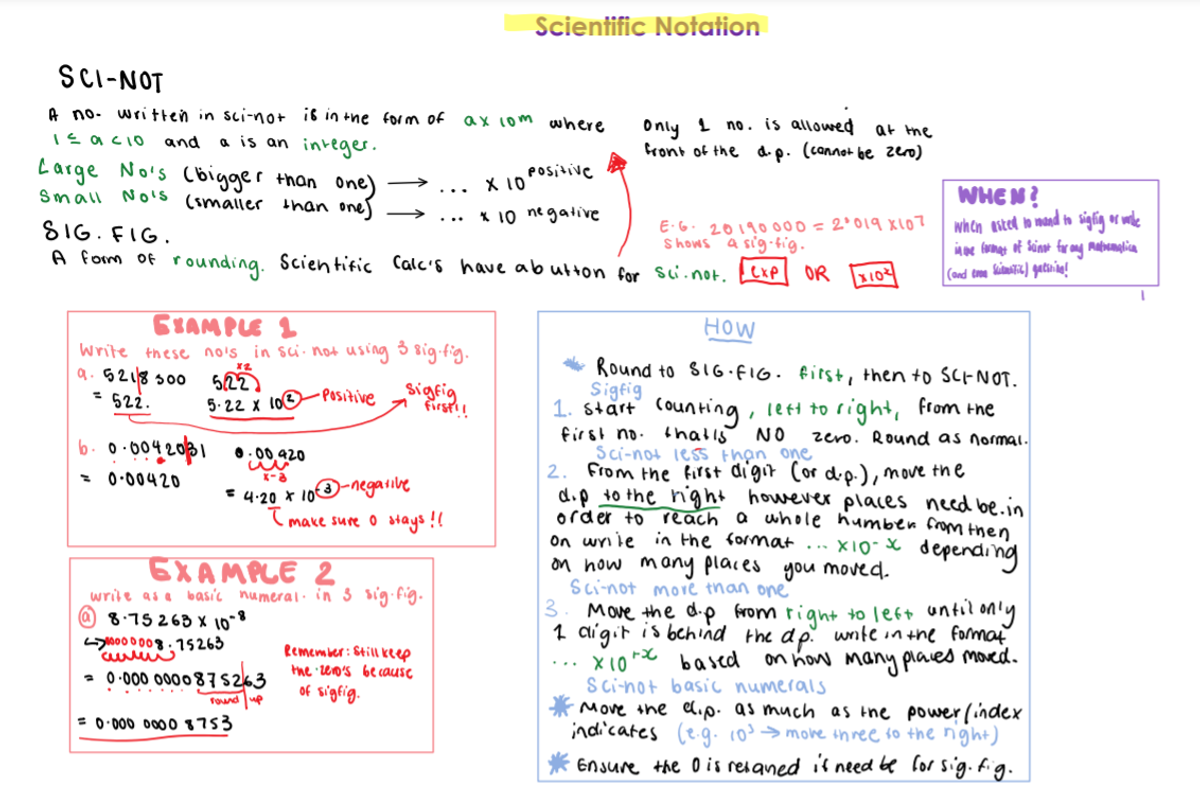 Scientific Notation
SCI-NOT
A no. written in sci-not is in the form of a x 10m where
1 ≤ a < 10 and a is an integer.
Only 1 no. is allowed at the
front of the d.p. (cannot be zero)
Large No's (bigger than one) → ... x 10 positive
Small No's (smaller than one) → ... x 10 negative
SIG. FIG.
A form of rounding. Scientific Calc's have a button for sci-not. EXP OR x10ˣ
E.G. 20190000 = 2·019 x107
Shows 4 sig.fig.
WHEN?
When asked to round to sigfig or write
in the format of Scinot for any mathematica
(and even scientific) question!
1
EXAMPLE 1
Write these no's in sci-not using 3 sig.fig.
a. 5218 300
= 522.
522
x2
5.22 x 10² - Positive
Sigfig
first!!
b. 0.0042031
= 0.00420
0.00420
x-3
= 4.20 x 10⁻³ - negative
make sure 0 stays!!
EXAMPLE 2
write as a basic numeral. in 3 sig.fig.
a 8.75263 x 10⁻⁸
↪ 00000008.75263
= 0.000 0000875263
round up
= 0.000 0000 8753
Remember: Still keep
the zero's because
of sigfig.
HOW
* Round to SIG.FIG. first, then to SCI-NOT.
Sigfig
1. Start counting, left to right, from the
first no. thatis NO zero. Round as normal.
Sci-not less than one
2. From the first digit (or d.p.), move the
d.p to the right however places need be.in
order to reach a whole number from then
on write in the format ... x10⁻ˣ depending
on how many places you moved.
Sci-not more than one
3. Move the d.p from right to left until only
1 digit is behind the dp. write in the format
... x10⁺ˣ based on how many places moved.
Sci-not basic numerals
* Move the d.p. as much as the power/index
indicates (e.g. 10³ → move three to the right)
* Ensure the 0 is retained if need be for sig.fig.